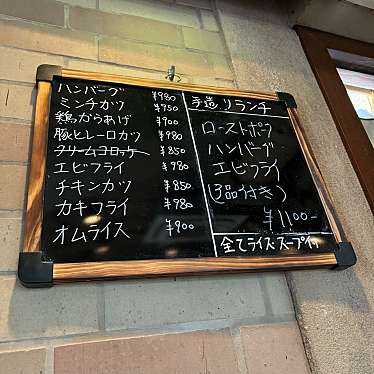 ハンバーグ ¥980
ミンチカツ ¥950
鶏からあげ ¥900
豚ヒレ一口カツ ¥980
クリームコロッケ ¥850
エビフライ ¥980
チキンカツ ¥850
カキフライ ¥980
オムライス ¥900
手造りランチ
ローストポーク
ハンバーグ
エビフライ
(3品付き)
¥1100-
全てライス・スープ付